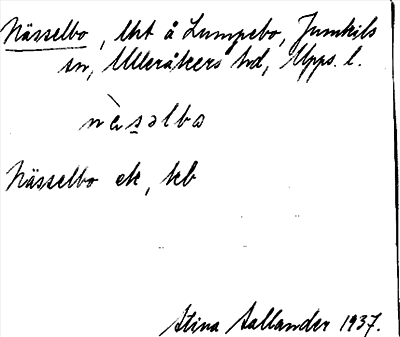 Nässelbo, lht å Lumpebo, Jumkils
sn, Ulleråkers hd, Upps. l.
nä̀s̠əlbo
Nässelbo ek, kb
Stina Sallander 1937.